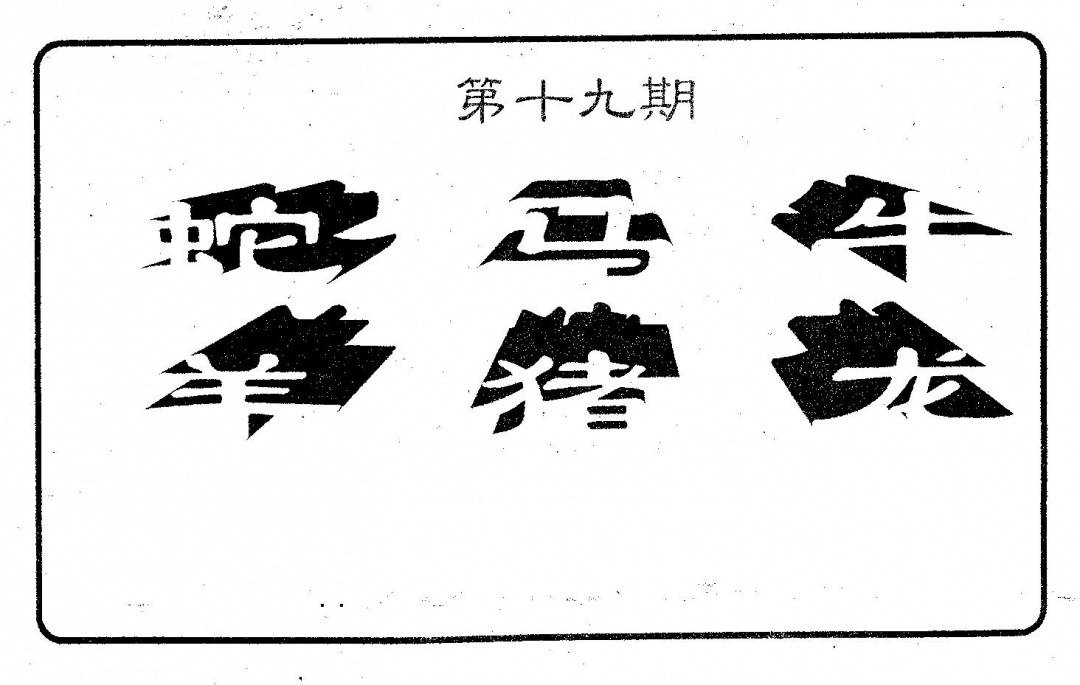 第十九期
蛇 马 牛
羊 猪 龙